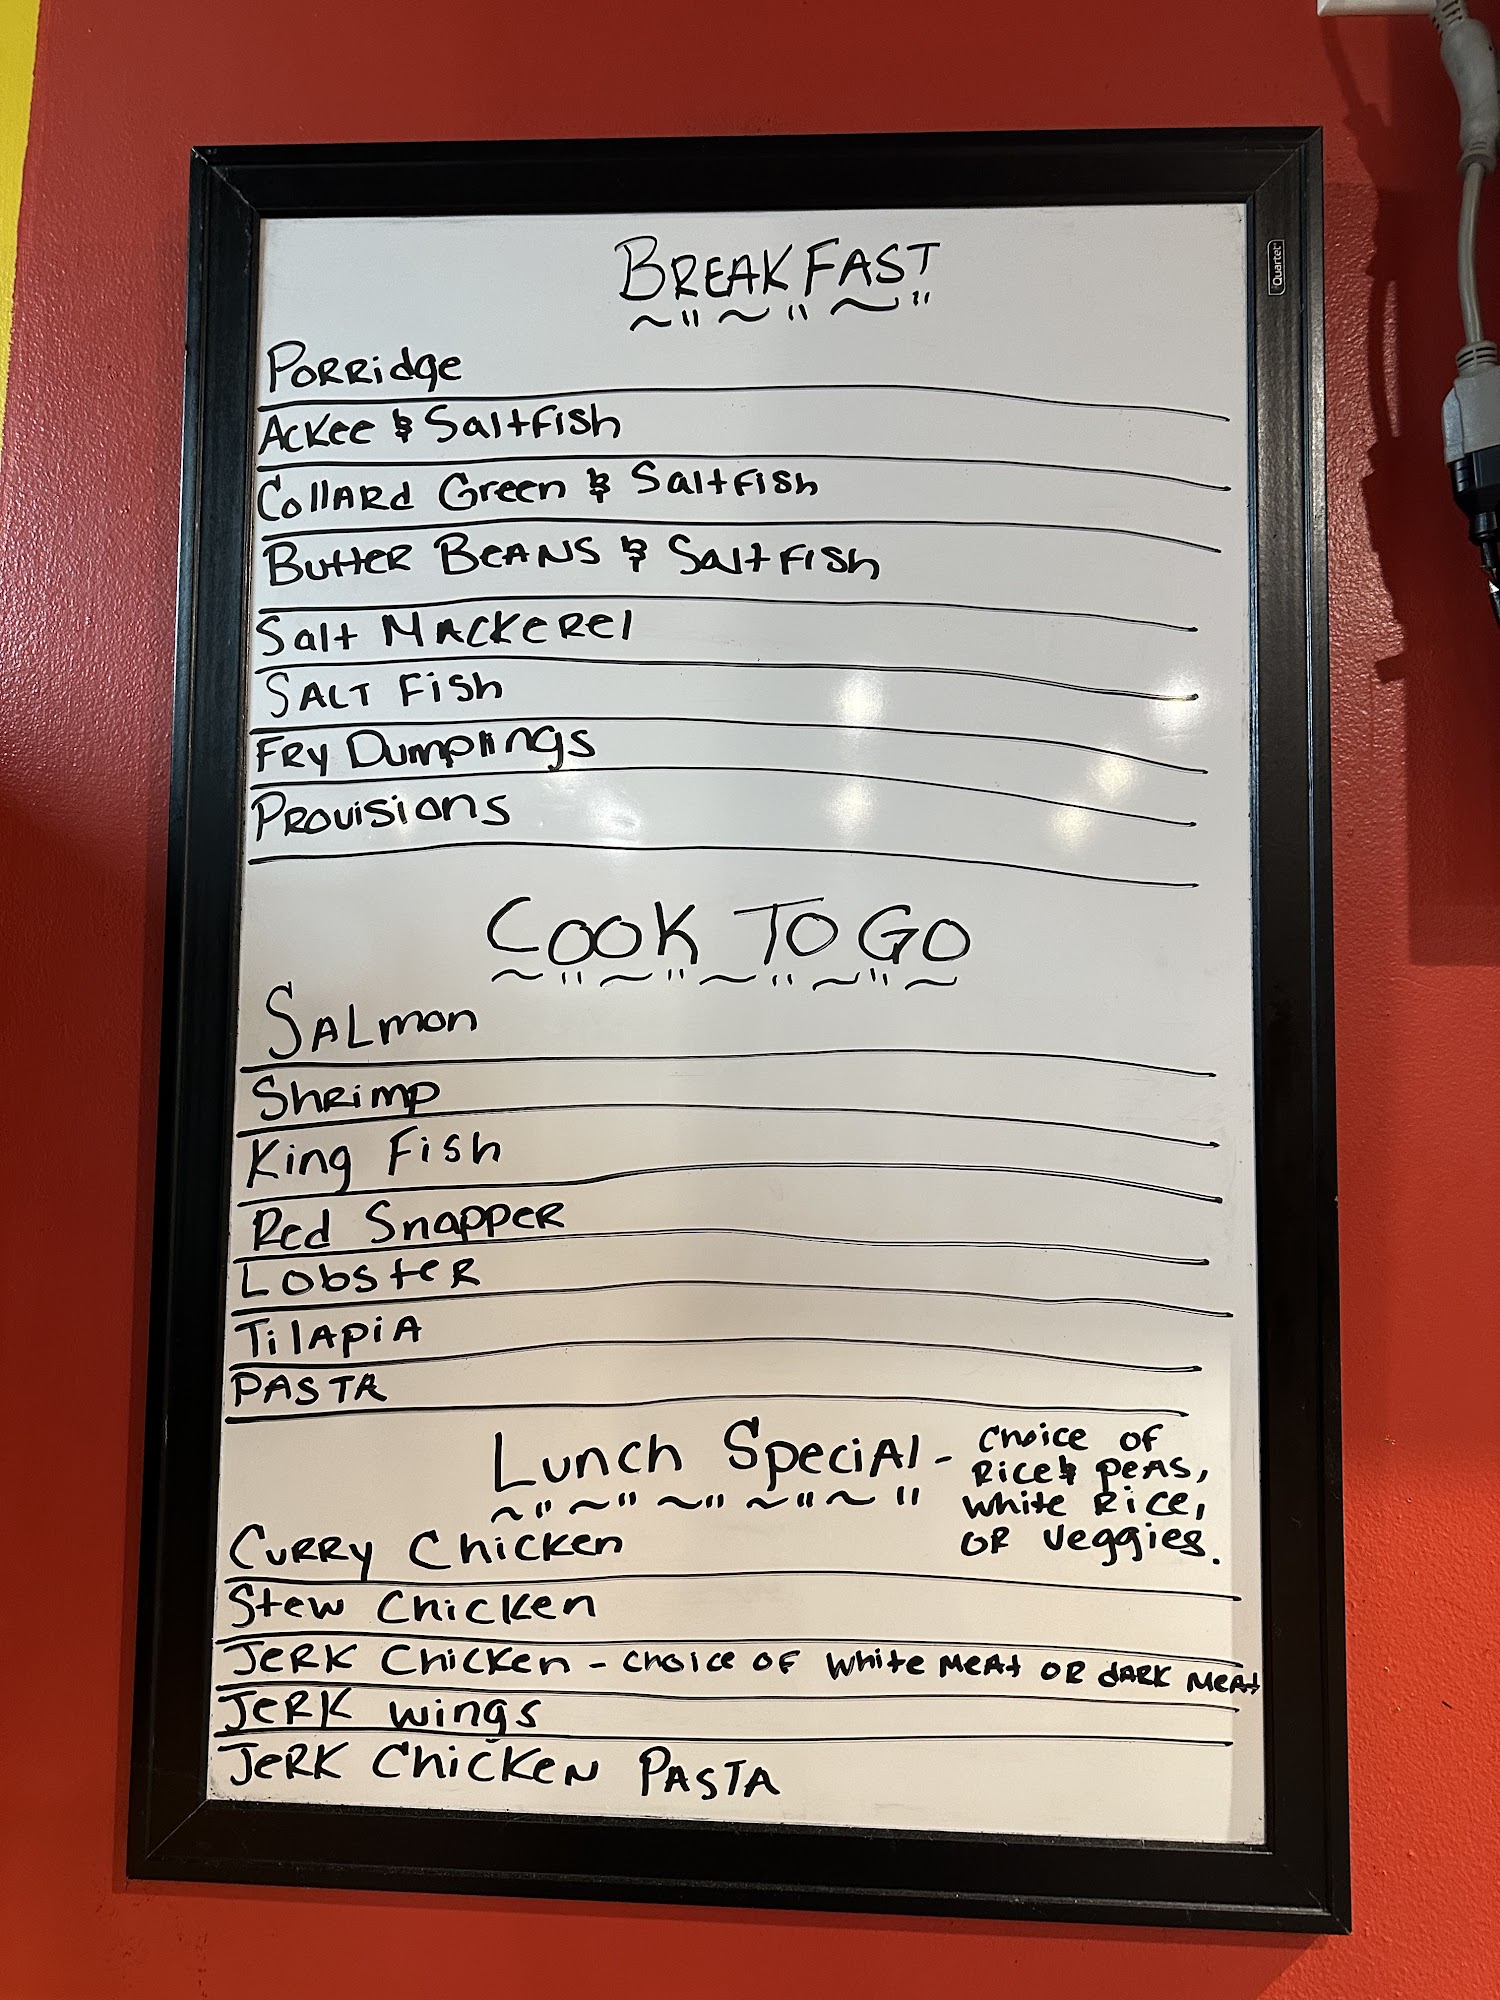 BREAKFAST
Quartet
PORRidge
Ackee & SaltFish
Collard Green & SaltFish
Butter Beans & SaltFish
Salt Mackerel
SALT Fish
FRy Dumplings
PROVisions
COOK TO GO
SALmon
Shrimp
King Fish
Red Snapper
Lobster
Tilapia
PASTA
Lunch Special - choice of
Rice & peas,
white Rice,
OR Veggies.
CURRY Chicken
Stew Chicken
JeRK Chicken - choice of white meat OR dark meat
JeRK wings
JeRK Chicken PASTA